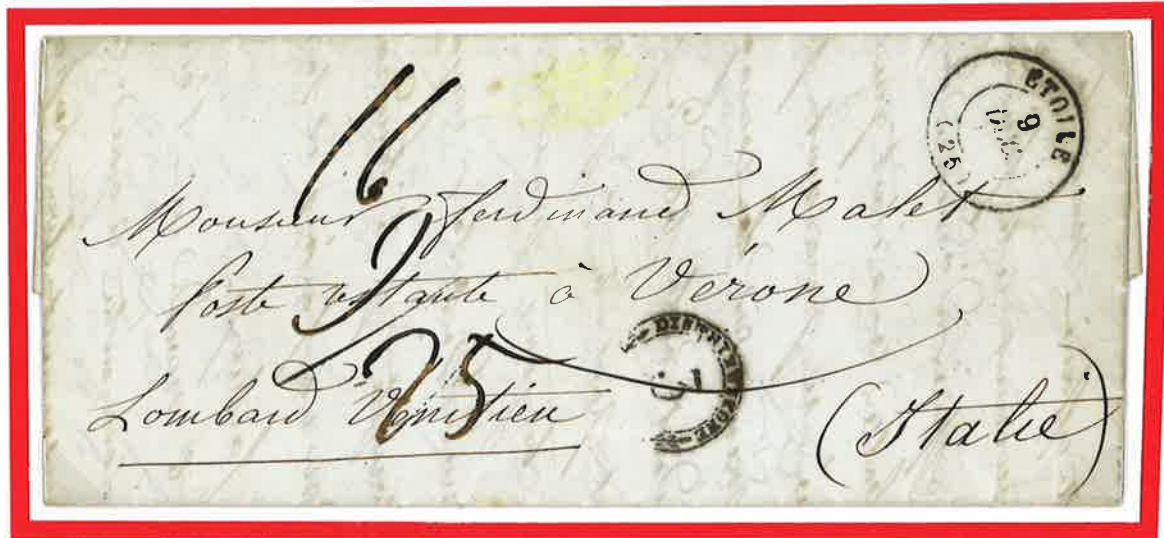 ETOILE
9
(25)
16
Monsieur Ferdinand Malet
9
Poste restante à Vérone
25
DISTRIBUZIONE
Lombard Vénitien
(Italie)